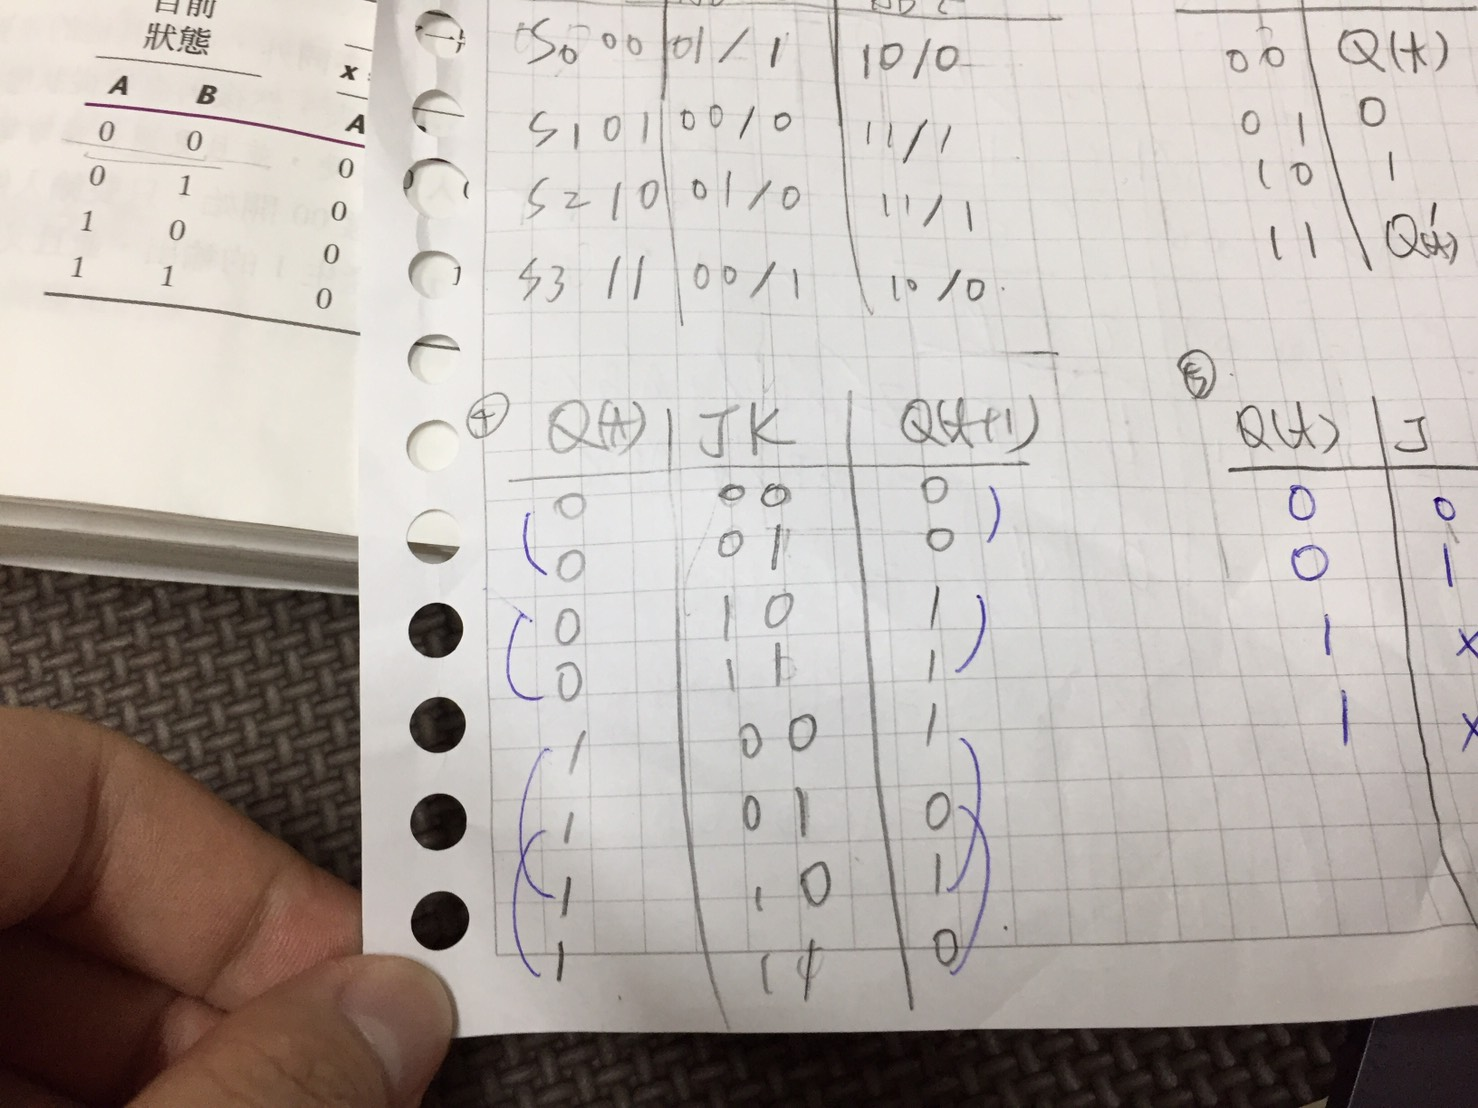 目前
狀態
x
A B
A
0 0 0
0 1 0
1 0 0
1 1 0
S0 00 01/1 10/0
S1 01 00/0 11/1
S2 10 01/0 11/1
S3 11 00/1 10/0
00 Q(t)
01 0
10 1
11 Q'(t)
④ Q(t) JK Q(t+1)
0 00 0
0 01 0
0 10 1
0 11 1
1 00 1
1 01 0
1 10 1
1 11 0
⑤
Q(t) J
0 0
0 1
1 x
1 x